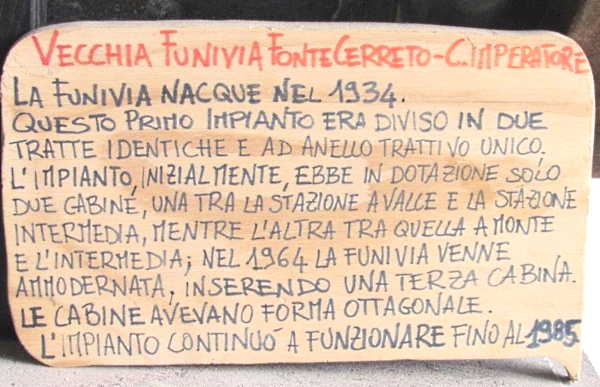 VECCHIA FUNIVIA FONTECERRETO-C.IMPERATORE
LA FUNIVIA NACQUE NEL 1934.
QUESTO PRIMO IMPIANTO ERA DIVISO IN DUE
TRATTE IDENTICHE E AD ANELLO TRATTIVO UNICO.
L'IMPIANTO, INIZIALMENTE, EBBE IN DOTAZIONE SOLO
DUE CABINE, UNA TRA LA STAZIONE A VALLE E LA STAZIONE
INTERMEDIA, MENTRE L'ALTRA TRA QUELLA A MONTE
E L'INTERMEDIA; NEL 1964 LA FUNIVIA VENNE
AMMODERNATA, INSERENDO UNA TERZA CABINA.
LE CABINE AVEVANO FORMA OTTAGONALE.
L'IMPIANTO CONTINUO' A FUNZIONARE FINO AL 1985